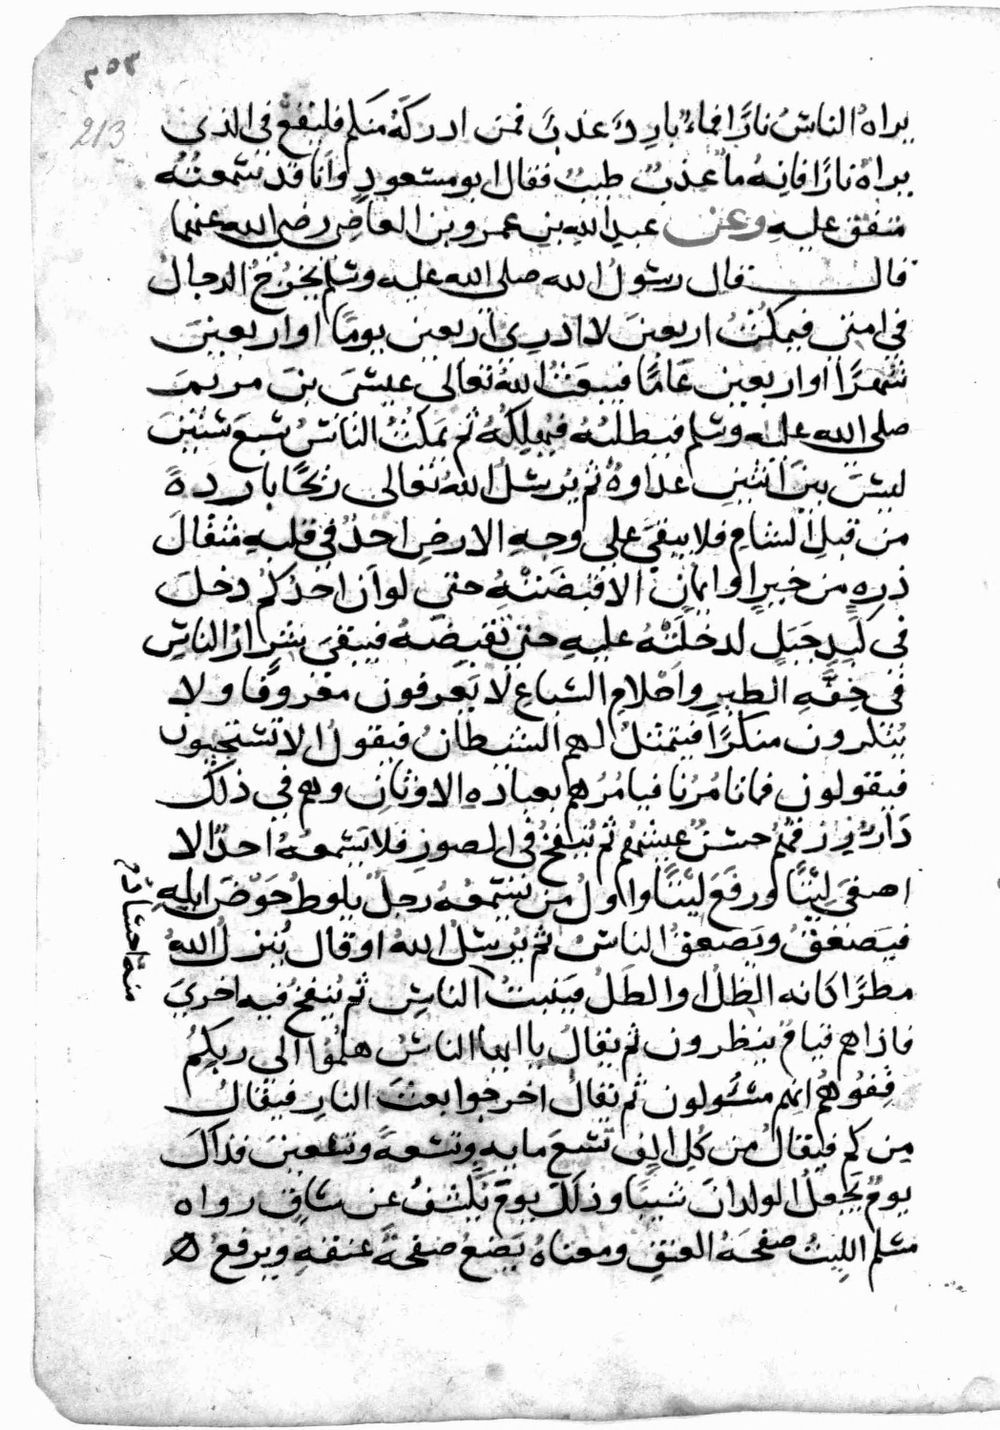 ٢٥٣
213
يراه الناس نارا فماء بارد وعذب فمن ادركه منكم فليقع في الذي
يراه نارا فانه ماء عذب طيب فقال ابو مسعود وانا قد سمعته
متفق عليه وعن عبد الله بن عمرو بن العاص رضي الله عنهما
قال قال رسول الله صلى الله عليه وسلم يخرج الدجال
في امتي فيمكث اربعين لا ادري اربعين يوما او اربعين
شهرا او اربعين عاما فيبعث الله تعالى عيسى بن مريم
صلى الله عليه وسلم فيطلبه فيهلكه ثم يمكث الناس سبع سنين
ليس بين اثنين عداوة ثم يرسل الله تعالى ريحا باردة
من قبل الشام فلا يبقى على وجه الارض احد في قلبه مثقال
ذرة من خير او ايمان الا قبضته حتى لو ان احدكم دخل
في كبد جبل لدخلته عليه حتى تقبضه فيبقى شرار الناس
في خفة الطير واحلام السباع لا يعرفون معروفا ولا
ينكرون منكرا فيتمثل لهم الشيطان فيقول الا تستجيبون
فيقولون فما تامرنا فيامرهم بعبادة الاوثان وهم في ذلك
دار رزقهم حسن عيشهم ثم ينفخ في الصور فلا يسمعه احد الا
اصغى ليتا ورفع ليتا واول من يسمعه رجل يلوط حوض ابله
فيصعق ويصعق الناس ثم يرسل الله او قال ينزل الله
مطرا كانه الظل او الطل فينبت الناس ثم ينفخ فيه اخرى
فاذا هم قيام ينظرون ثم يقال يا ايها الناس هلموا الى ربكم
قفوهم انهم مسئولون ثم يقال اخرجوا بعث النار فيقال
من كم فيقال من كل الف تسع مايه وتسعة وتسعين فذاك
يوم يجعل الولدان شيبا وذلك يوم يكشف عن ساق رواه
مسلم الليت صفحة العنق ومعناه يضع صفحة عنقه ويرفع